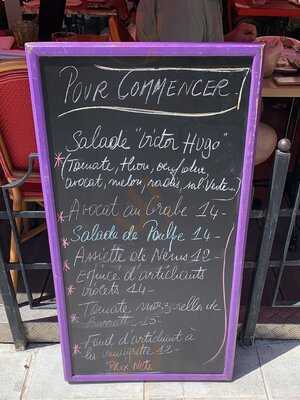 POUR COMMENCER
Salade "Victor Hugo"
(Tomate, thon, oeuf dur
avocat, melon, radis, sal Verte...)
* Avocat au Crabe 14-
* Salade de Poulpe 14-
* Assiette de Nems 12-
* Emincé d'artichauts
violets 14-
* Tomate mozzarella de
15-
* Fond d'artichaut à
la vinaigrette 12-
PRIX NETS